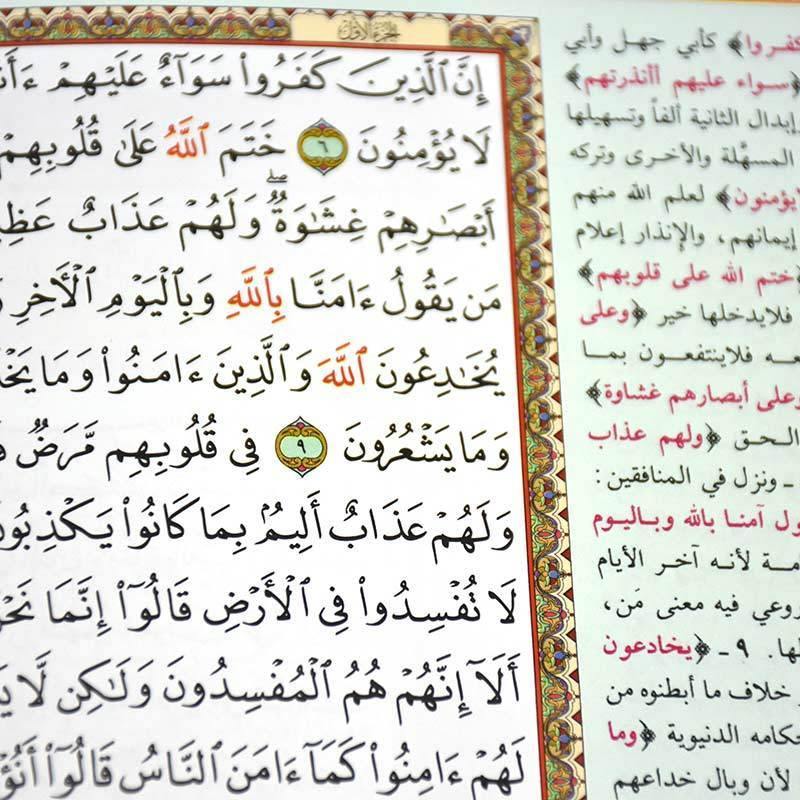 الجزء الأول
إِنَّ ٱلَّذِينَ كَفَرُوا۟ سَوَآءٌ عَلَيْهِمْ
لَا يُؤْمِنُونَ ٦ خَتَمَ ٱللَّهُ عَلَىٰ قُلُوبِهِمْ
أَبْصَٰرِهِمْ غِشَٰوَةٌ ۖ وَلَهُمْ عَذَابٌ
مَن يَقُولُ ءَامَنَّا بِٱللَّهِ وَبِٱلْيَوْمِ ٱلْأَخِرِ
يُخَٰدِعُونَ ٱللَّهَ وَٱلَّذِينَ ءَامَنُوا۟ وَمَا
وَمَا يَشْعُرُونَ ٩ فِى قُلُوبِهِم مَّرَضٌ
وَلَهُمْ عَذَابٌ أَلِيمٌۢ بِمَا كَانُوا۟
لَا تُفْسِدُوا۟ فِى ٱلْأَرْضِ قَالُوٓا۟ إِنَّمَا
أَلَآ إِنَّهُمْ هُمُ ٱلْمُفْسِدُونَ وَلَٰكِن لَّا
لَهُمْ ءَامِنُوا۟ كَمَآ ءَامَنَ ٱلنَّاسُ قَالُوٓا۟
كفروا﴾ كأبي جهل وأبي
﴿سواء عليهم أأنذرتهم﴾
إبدال الثانية ألفاً وتسهيلها
المسهَّلة والأخرى وتركه
يؤمنون﴾ لعلم الله منهم
إيمانهم، والإنذار إعلام
﴿ختم الله على قلوبهم﴾
فلايدخلها خير ﴿وعلى
فلاينتفعون بما
وعلى أبصارهم غشاوة﴾
الحق ﴿ولهم عذاب
ـ ونزل في المنافقين:
آمنا بالله وباليوم
لأنه آخر الأيام
روعي فيه معنى مَن،
٩ ـ ﴿يخادعون
خلاف ما أبطنوه من
الدنيوية ﴿وما
لأن وبال خداعهم